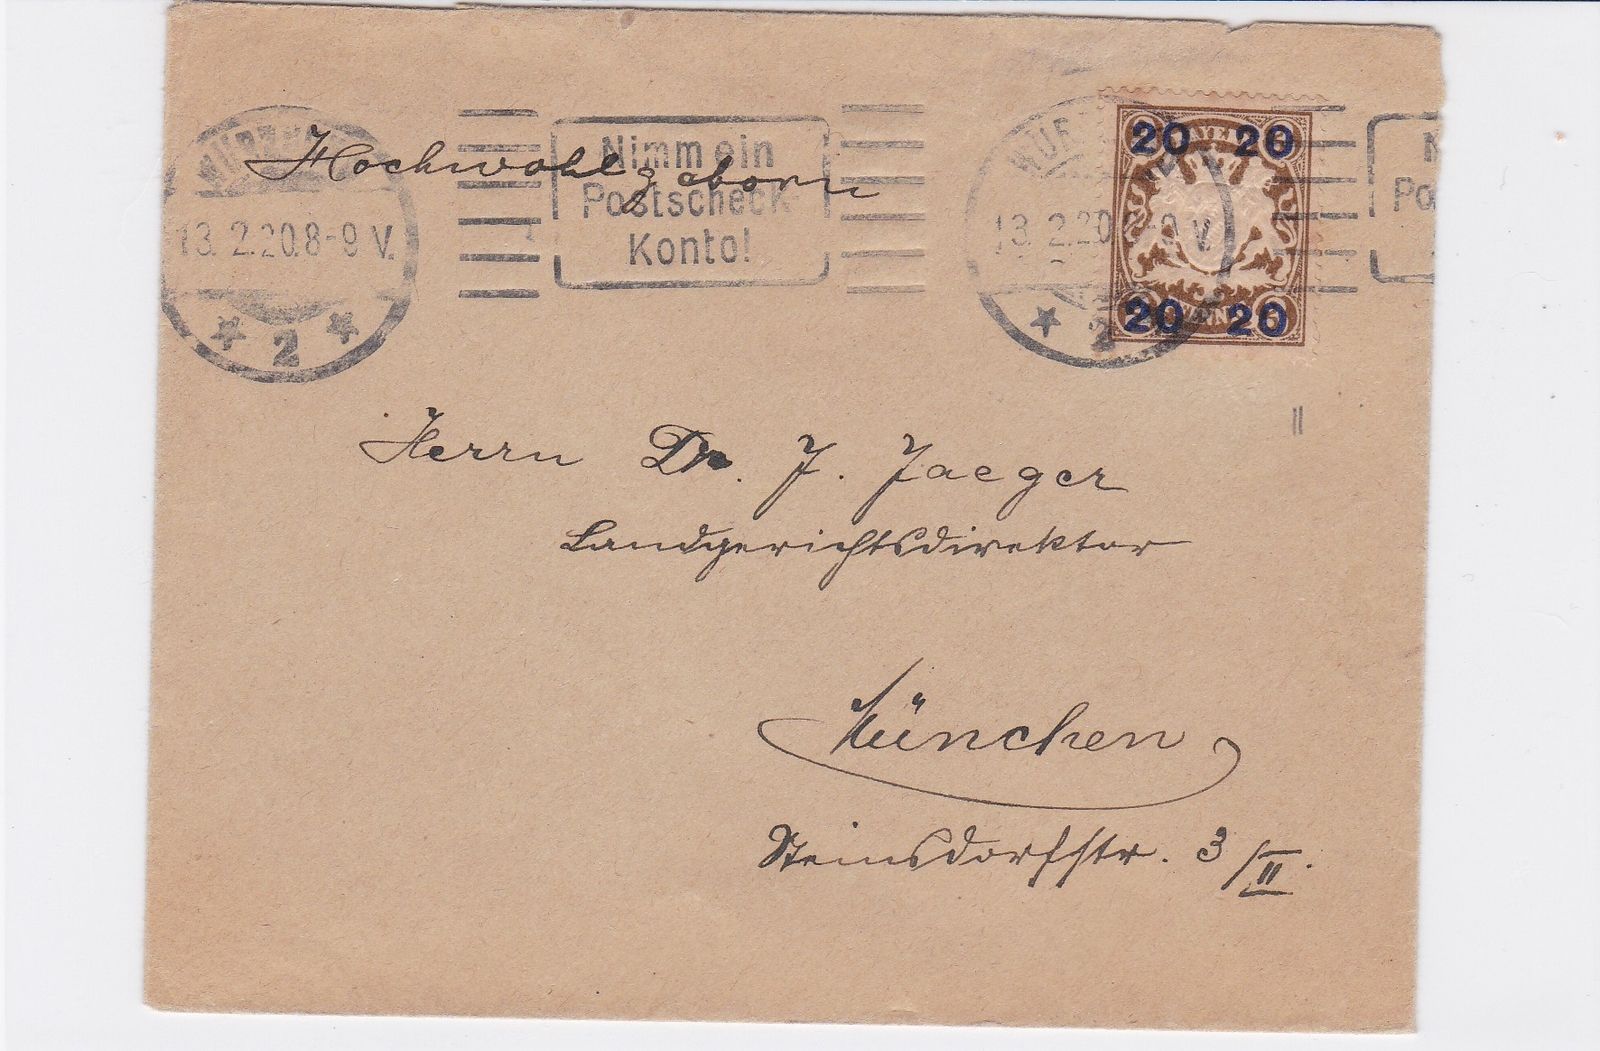 Hochwohlgeboren
13.2.20.8-9 V.
2
Nimm ein
Postscheck-
Konto!
13.2.20 8-9 V.
2
20 20
20 20
Herrn Dr. J. Jaeger
Landgerichtsdirektor
München
Steinsdorfstr. 3/II.